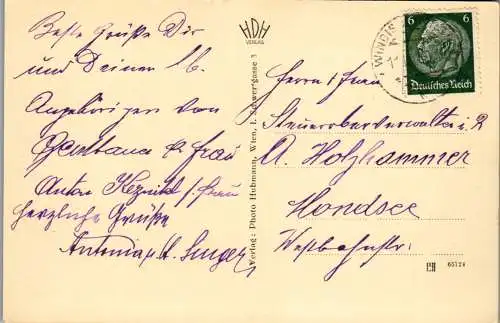 Beste Grüße Dir
und Deinen lb.
Angehörigen von
Frau
Anton
herzliche Grüße
Antonia u. A. Singer
HDH
VERLAG
Verlag: Photo Hubmann, Wien, I. Schwertgasse 3
6 6
Deutsches Reich
WINDIS
Herrn u. Frau
Steueroberverwalter i. R.
A. Holzhammer
Mondsee
Westbahnstr.